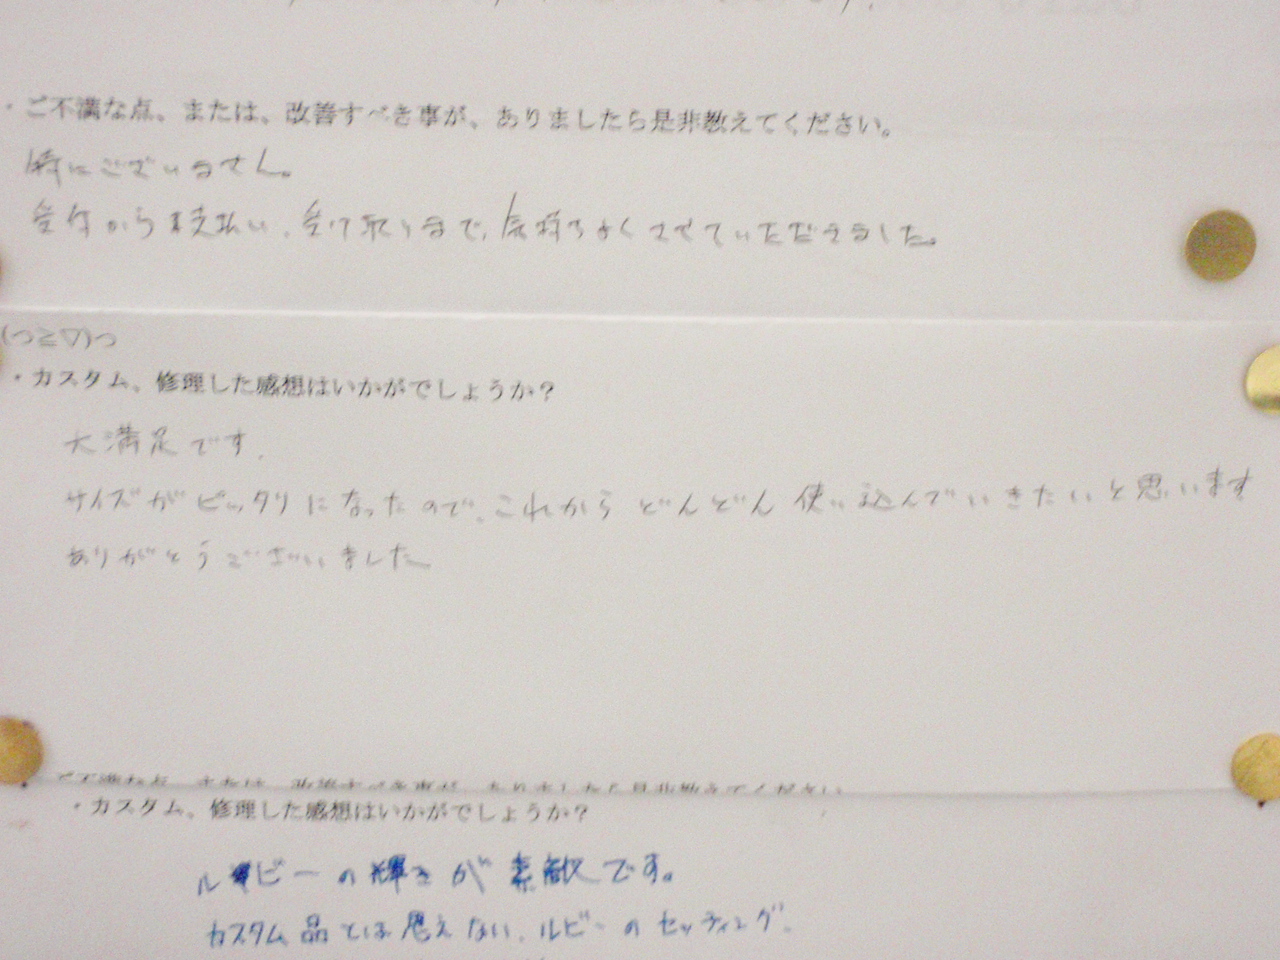 ・ご不満な点、または、改善すべき事が、ありましたら是非教えてください。
特にございません。
受付から支払い、受け取りまで、気持ちよくさせていただきました。
(つ≧▽)つ
・カスタム、修理した感想はいかがでしょうか？
大満足です.
サイズがピッタリになったので、これからどんどん使い込んでいきたいと思います
ありがとうございました
ご不満な点、または、改善すべき事が、ありましたら是非教えてください
・カスタム、修理した感想はいかがでしょうか？
ルビーの輝きが素敵です。
カスタム品とは思えない、ルビーのセッティング.